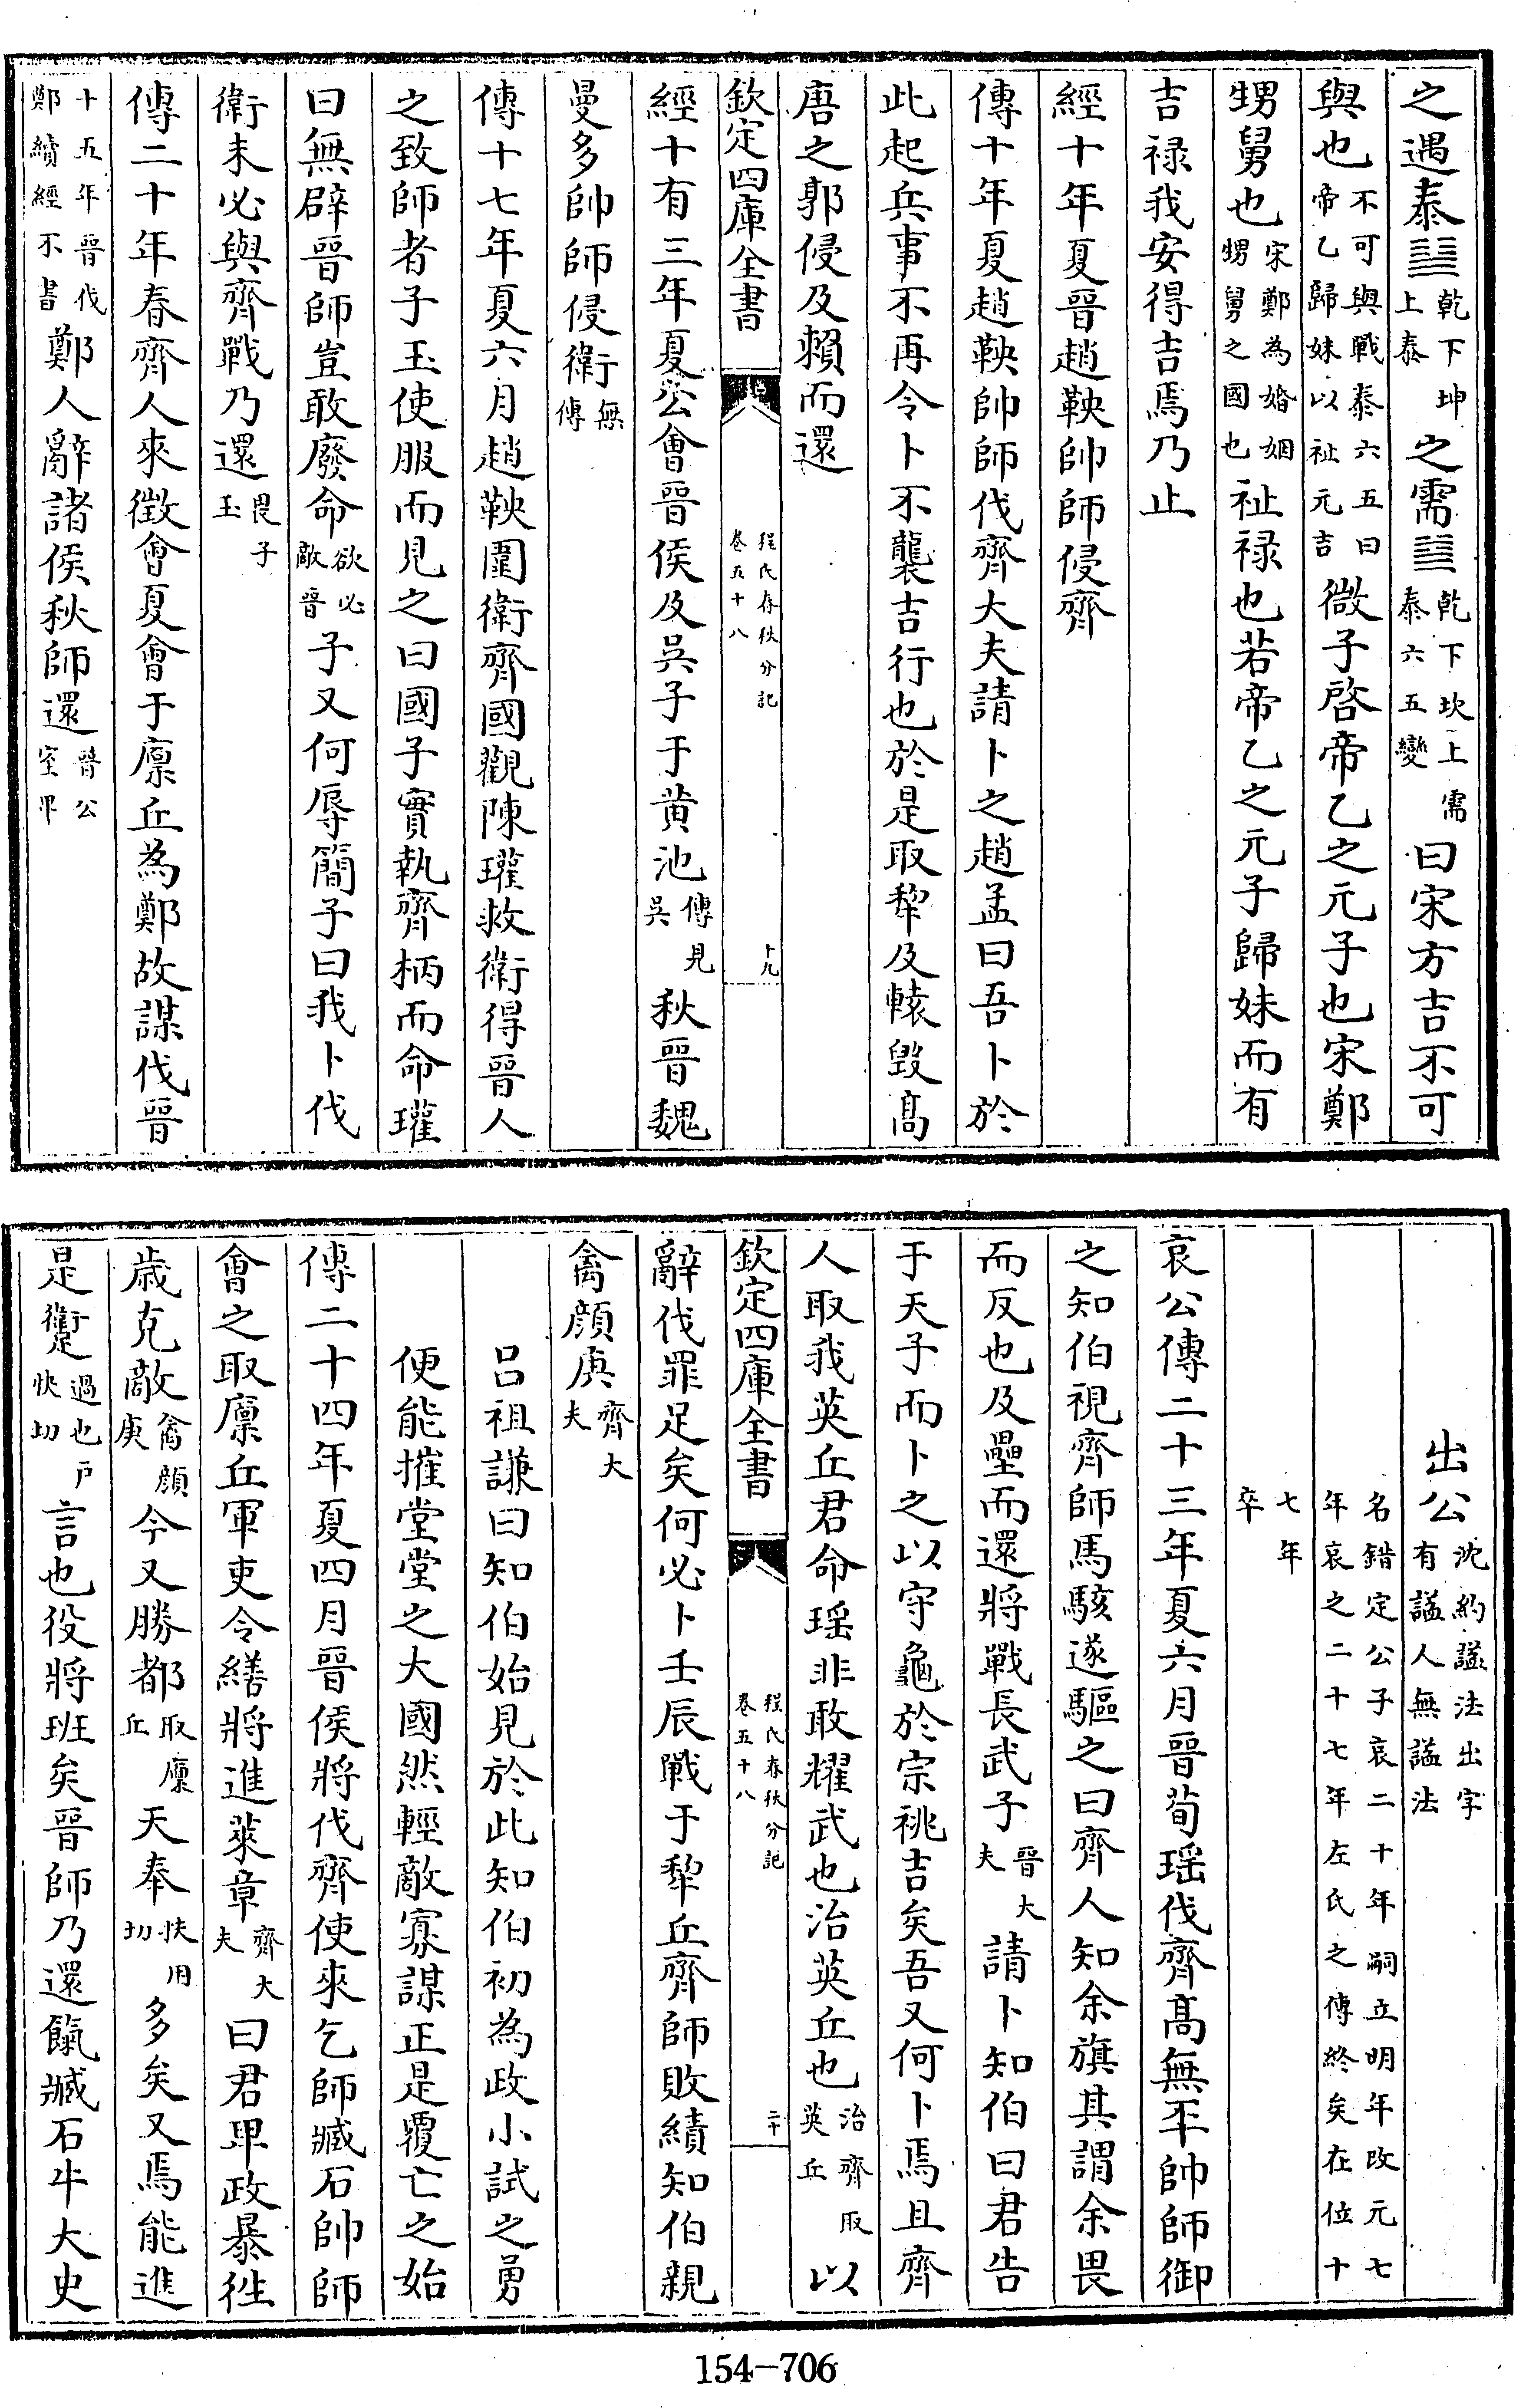 之遇泰䷊乾下坤上泰之需䷄乾下坎上需泰六五變曰宋方吉不可
與也不可與戰泰六五曰帝乙歸妹以祉元吉微子啓帝乙之元子也宋鄭
甥舅也宋鄭為婚姻甥舅之國也祉禄也若帝乙之元子歸妹而有
吉禄我安得吉焉乃止
經十年夏晉趙鞅帥師侵齊
傳十年夏趙鞅帥師伐齊大夫請卜之趙孟曰吾卜於
此起兵事不再令卜不襲吉行也於是取犂及轅毁髙
唐之郭侵及賴而還
欽定四庫全書 程氏春秋分記 卷五十八 十九
經十有三年夏公會晉侯及吳子于黄池傳見吳秋晉魏
曼多帥師侵衛無傳
傳十七年夏六月趙鞅圍衛齊國觀陳瓘救衛得晉人
之致師者子玉使服而見之曰國子實執齊柄而命瓘
曰無辟晉師豈敢廢命欲必敵晉子又何辱簡子曰我卜伐
衛未必與齊戰乃還畏子玉
傳二十年春齊人來徴會夏會于廪丘為鄭故謀伐晉
十五年晉伐鄭續經不書鄭人辭諸侯秋師還晉公室卑
出公沈約諡法出字有諡人無諡法
名錯定公子哀二十年嗣立明年改元七年哀之二十七年左氏之傳終矣在位十
七年卒
哀公傳二十三年夏六月晉荀瑶伐齊髙無㔻帥師御
之知伯視齊師馬駭遂驅之曰齊人知余旗其謂余畏
而反也及壘而還將戰長武子晉大夫請卜知伯曰君告
于天子而卜之以守龜於宗祧吉矣吾又何卜焉且齊
人取我英丘君命瑶非敢耀武也治英丘也治齊取英丘以
欽定四庫全書 程氏春秋分記 卷五十八 二十
辭伐罪足矣何必卜壬辰戰于犂丘齊師敗績知伯親
禽顔庚齊大夫
吕祖謙曰知伯始見於此知伯初為政小試之勇
便能摧堂堂之大國然輕敵寡謀正是覆亡之始
傳二十四年夏四月晉侯將伐齊使來乞師臧石帥師
會之取廪丘軍吏令繕將進萊章齊大夫曰君卑政暴徃
歳克敵禽顔庚今又勝都取廪丘天奉扶用切多矣又焉能進
是躗過也戸快切言也役將班矣晉師乃還餼臧石牛大史
154-706